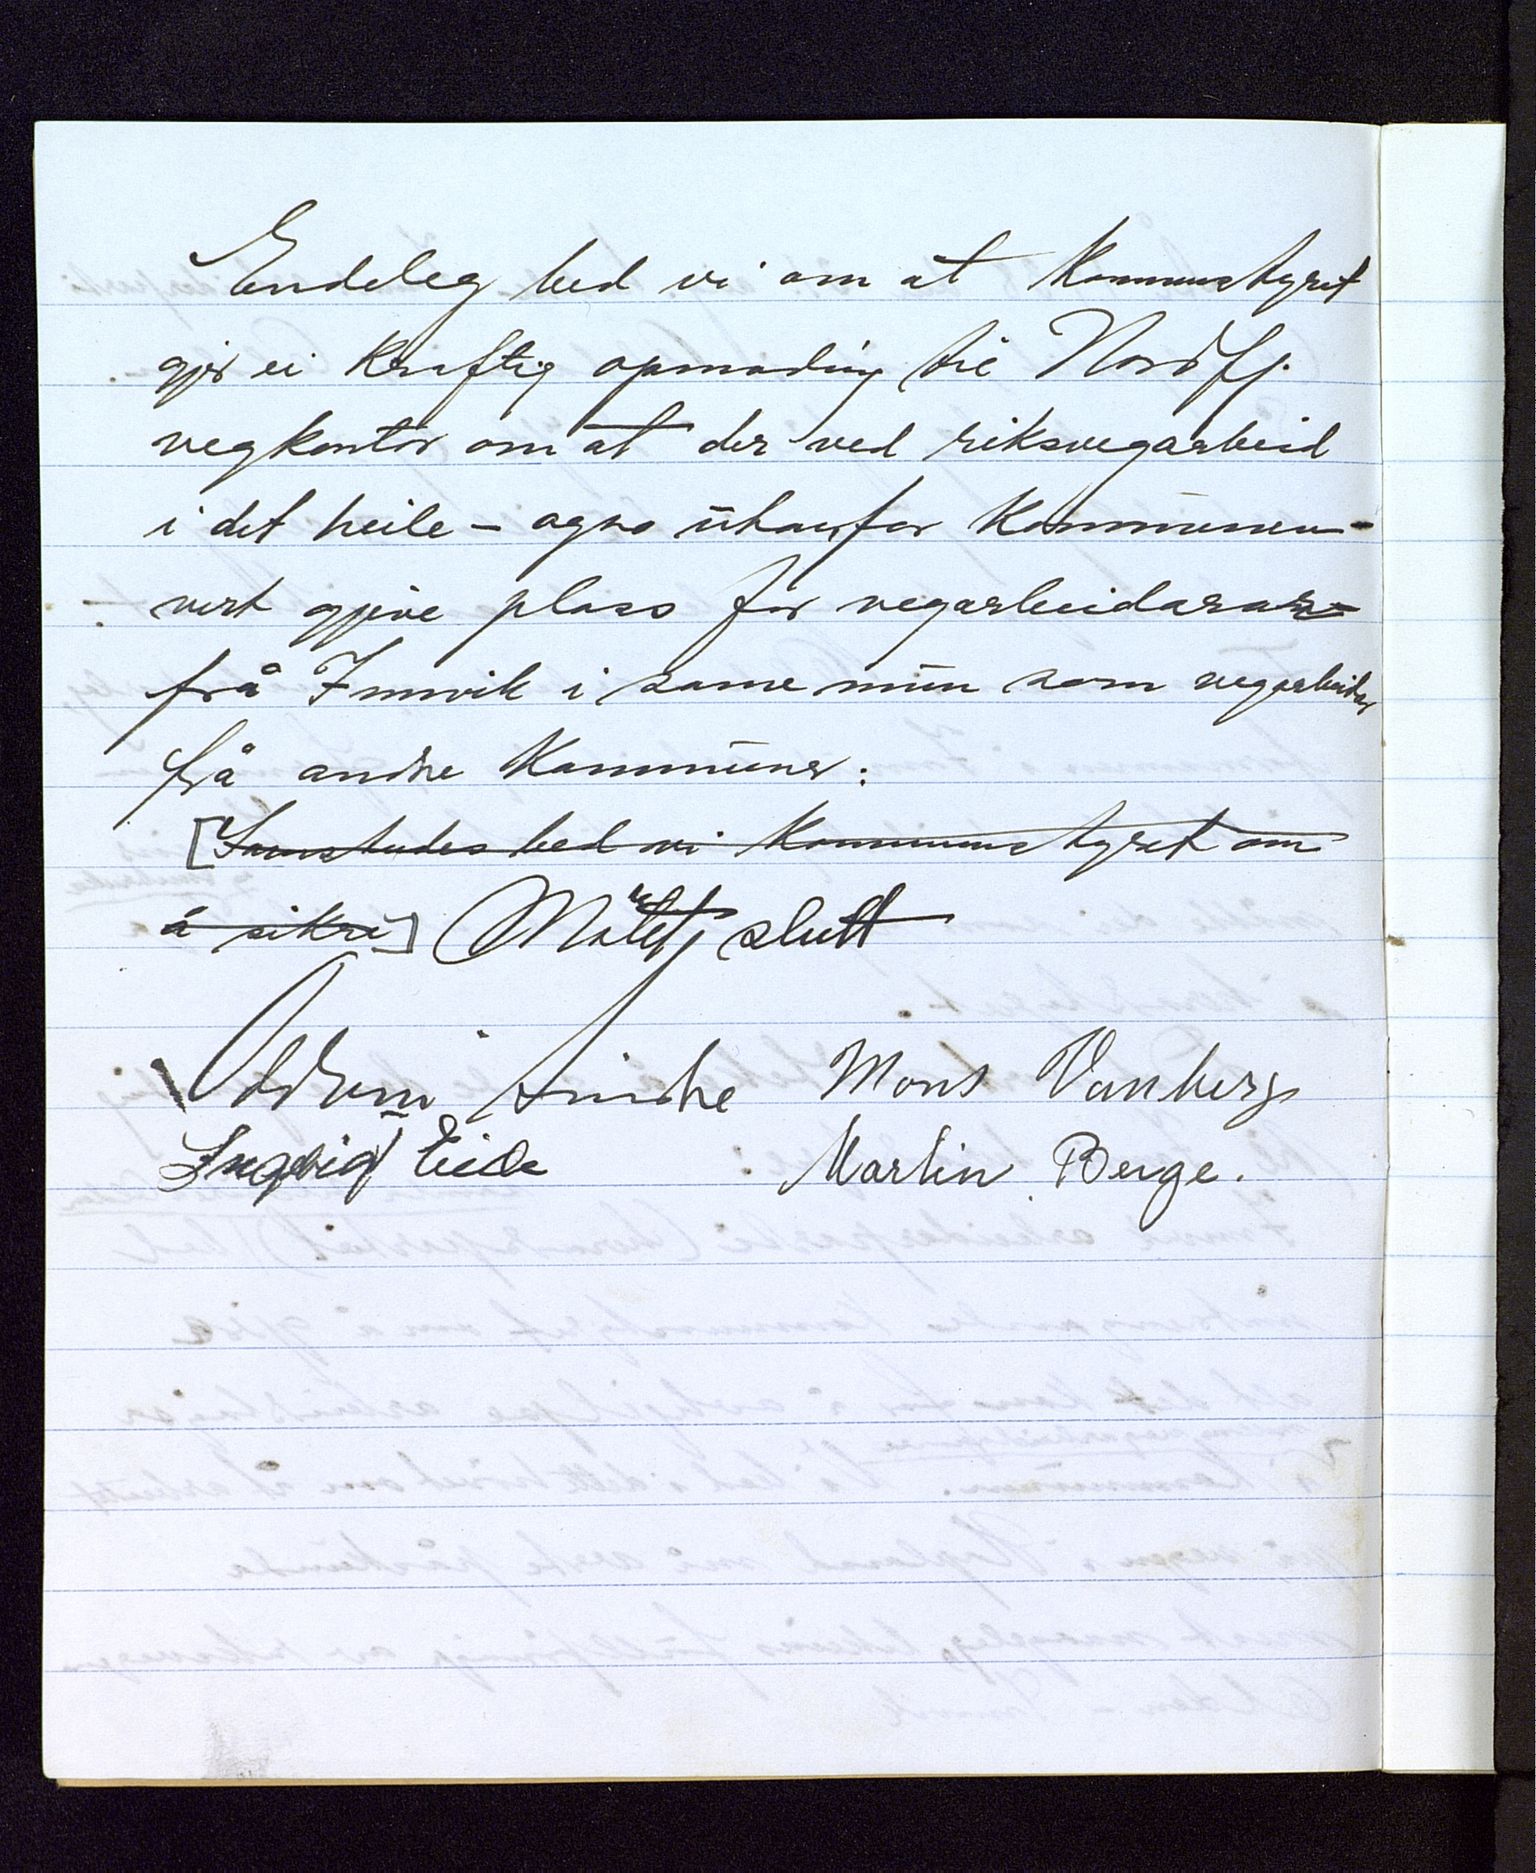 Endeleg bed vi om at Kommunstyret
gjer ei kraftig opmoding til Nordfj.
vegkontor om at der ved riksvegarbeid
i det heile – ogso utanfor Kommunen –
vert gjeve plass for vegarbeidarar
frå Innvik i same mun som vegarbeidar
frå andre Kommuner:
[Samstundes bed vi Kommunestyret om
å sikre] Møtet slutt
Oddvin Sindre Mons Vanberg
Ingvald Eide Martin Berge.